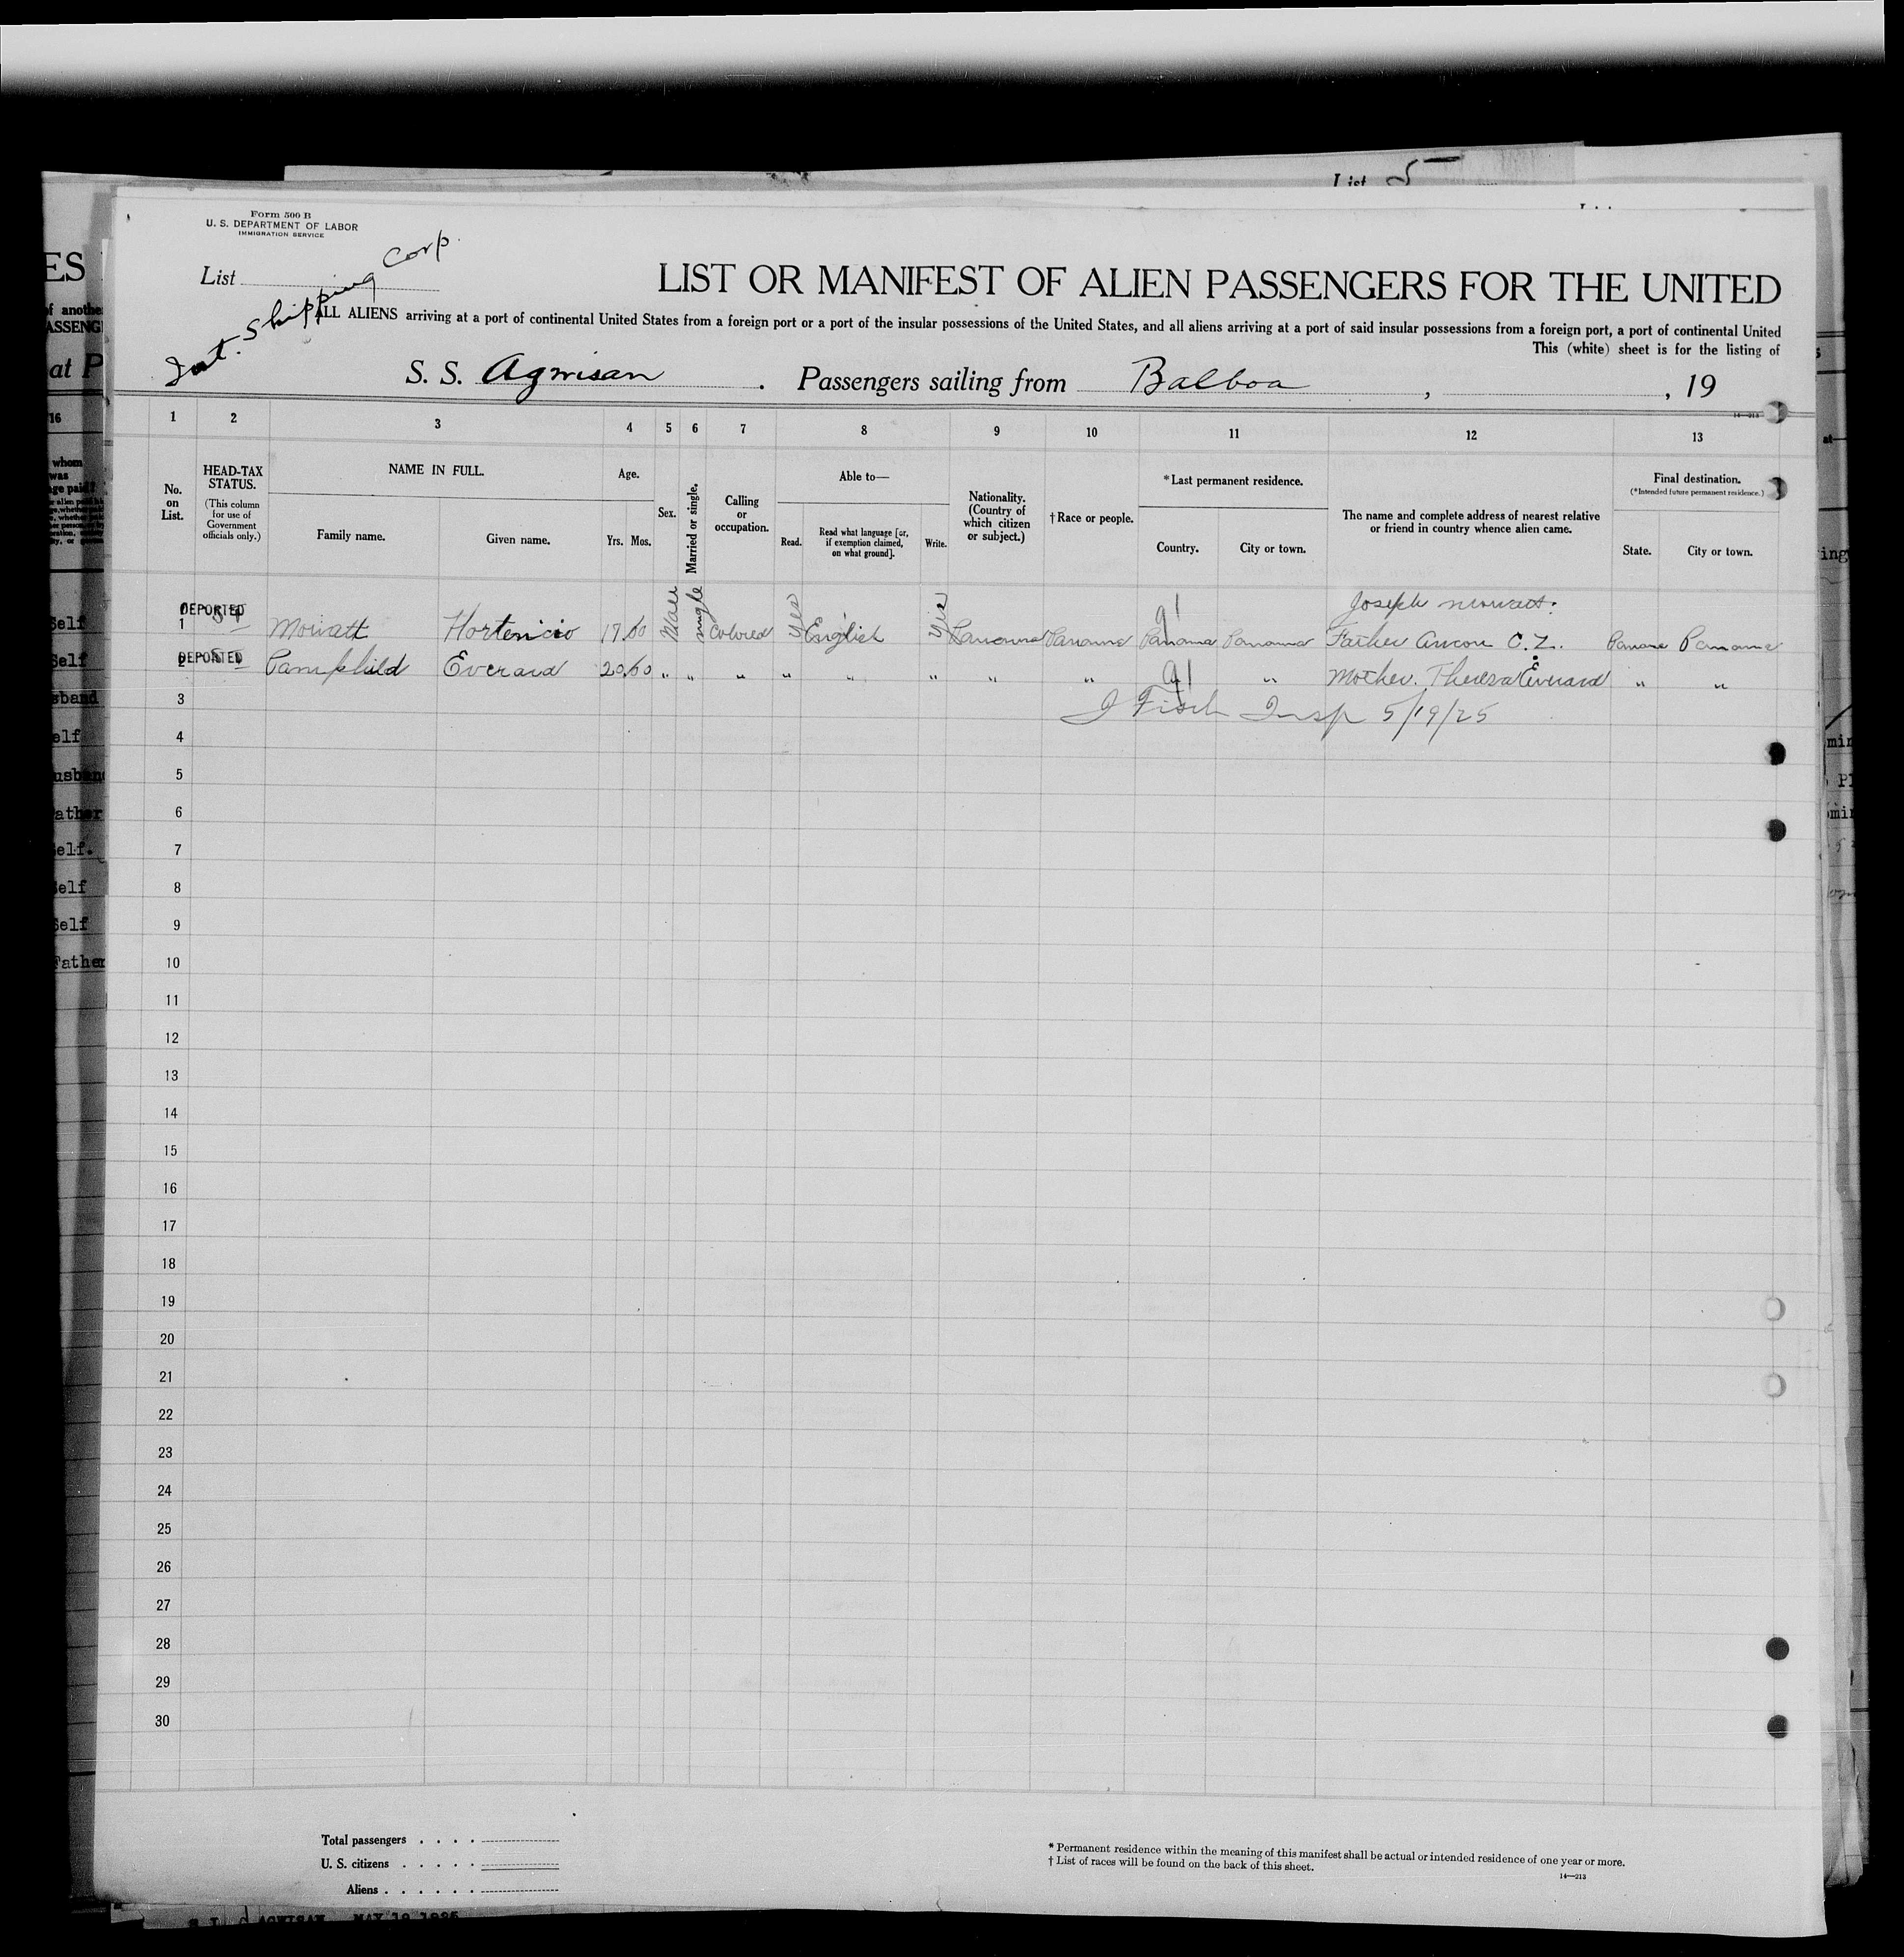 List 5
Form 500 B
U. S. DEPARTMENT OF LABOR
IMMIGRATION SERVICE
List
Int. Shipping Corp.
LIST OR MANIFEST OF ALIEN PASSENGERS FOR THE UNITED
ALL ALIENS arriving at a port of continental United States from a foreign port or a port of the insular possessions of the United States, and all aliens arriving at a port of said insular possessions from a foreign port, a port of continental United
This (white) sheet is for the listing of
S. S. Agwisan. Passengers sailing from Balboa, , 19
1 2 3 4 5 6 7 8 9 10 11 12 13
No. on List.
HEAD-TAX STATUS.
(This column for use of Government officials only.)
NAME IN FULL.
Family name.
Given name.
Age.
Yrs. Mos.
Sex.
Married or single.
Calling or occupation.
Able to—
Read.
Read what language [or, if exemption claimed, on what ground].
Write.
Nationality. (Country of which citizen or subject.)
†Race or people.
*Last permanent residence.
Country.
City or town.
The name and complete address of nearest relative or friend in country whence alien came.
Final destination.
(*Intended future permanent residence.)
State.
City or town.
Joseph Mowatt.
DEPORTED
1 Mowatt Hortencio 17 Male single Colored yes English yes Panama Panama Panama Panama Father Ancon C.Z. Panama Panama
DEPORTED
2 Pamphild Everard 20 " " " " " " " " " Mother. Theresa Everard " "
3 J Fisch Insp 5/19/25
4
5
6
7
8
9
10
11
12
13
14
15
16
17
18
19
20
21
22
23
24
25
26
27
28
29
30
Total passengers
U. S. citizens
Aliens
* Permanent residence within the meaning of this manifest shall be actual or intended residence of one year or more.
† List of races will be found on the back of this sheet.
14—213
AGWISAN MAY 19 1925